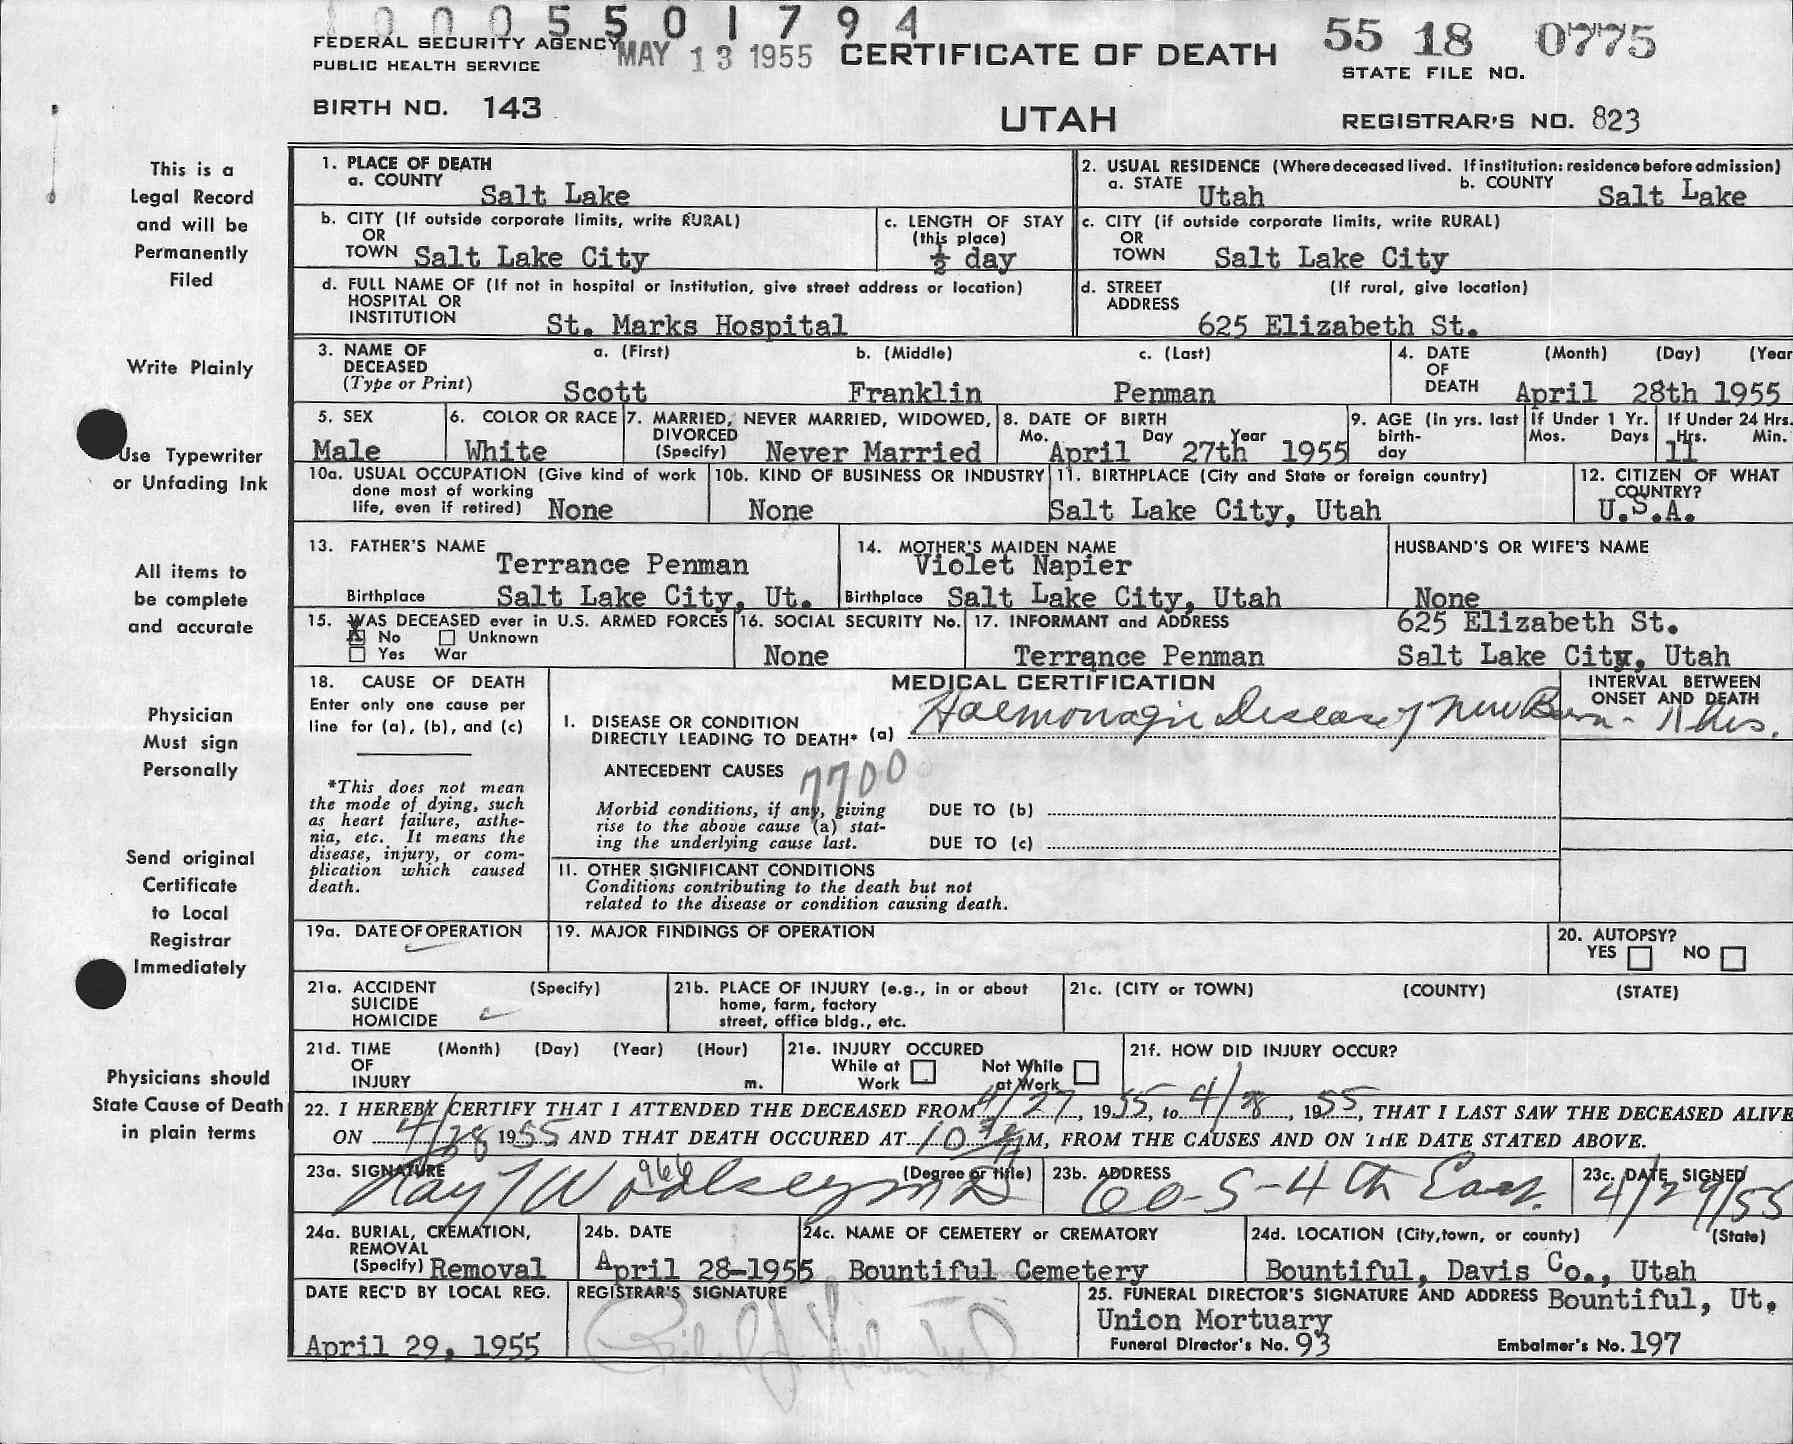 1 0 0 0 5 5 0 1 7 9 4
FEDERAL SECURITY AGENCY
PUBLIC HEALTH SERVICE
MAY 13 1955
CERTIFICATE OF DEATH
55 18 0775
STATE FILE NO.
BIRTH NO. 143
UTAH
REGISTRAR'S NO. 823
This is a
Legal Record
and will be
Permanently
Filed
Write Plainly
Use Typewriter
or Unfading Ink
All items to
be complete
and accurate
Physician
Must sign
Personally
Send original
Certificate
to Local
Registrar
Immediately
Physicians should
State Cause of Death
in plain terms
1. PLACE OF DEATH
a. COUNTY Salt Lake
2. USUAL RESIDENCE (Where deceased lived. If institution: residence before admission)
a. STATE Utah b. COUNTY Salt Lake
b. CITY (If outside corporate limits, write RURAL)
OR
TOWN Salt Lake City
c. LENGTH OF STAY
(this place)
½ day
c. CITY (if outside corporate limits, write RURAL)
OR
TOWN Salt Lake City
d. FULL NAME OF (If not in hospital or institution, give street address or location)
HOSPITAL OR
INSTITUTION St. Marks Hospital
d. STREET (If rural, give location)
ADDRESS
625 Elizabeth St.
3. NAME OF DECEASED
(Type or Print)
a. (First) b. (Middle) c. (Last)
Scott Franklin Penman
4. DATE OF DEATH (Month) (Day) (Year
April 28th 1955
5. SEX
Male
6. COLOR OR RACE
White
7. MARRIED, NEVER MARRIED, WIDOWED,
DIVORCED
(Specify) Never Married
8. DATE OF BIRTH
Mo. Day Year
April 27th 1955
9. AGE (in yrs. last
birth-
day
If Under 1 Yr.
Mos. Days
If Under 24 Hrs.
Hrs. Min.
11
10a. USUAL OCCUPATION (Give kind of work
done most of working
life, even if retired) None
10b. KIND OF BUSINESS OR INDUSTRY
None
11. BIRTHPLACE (City and State or foreign country)
Salt Lake City, Utah
12. CITIZEN OF WHAT
COUNTRY?
U.S.A.
13. FATHER'S NAME
Terrance Penman
Birthplace Salt Lake City, Ut.
14. MOTHER'S MAIDEN NAME
Violet Napier
Birthplace Salt Lake City, Utah
HUSBAND'S OR WIFE'S NAME
None
15. WAS DECEASED ever in U.S. ARMED FORCES
X No Unknown
Yes War
16. SOCIAL SECURITY No.
None
17. INFORMANT and ADDRESS
Terrance Penman
625 Elizabeth St.
Salt Lake City, Utah
18. CAUSE OF DEATH
Enter only one cause per
line for (a), (b), and (c)
*This does not mean
the mode of dying, such
as heart failure, asthe-
nia, etc. It means the
disease, injury, or com-
plication which caused
death.
MEDICAL CERTIFICATION
INTERVAL BETWEEN
ONSET AND DEATH
I. DISEASE OR CONDITION
DIRECTLY LEADING TO DEATH* (a) Haemorragic Disease of New Born - 11 hrs.
ANTECEDENT CAUSES
7700
Morbid conditions, if any, giving
rise to the above cause (a) stat-
ing the underlying cause last.
DUE TO (b)
DUE TO (c)
II. OTHER SIGNIFICANT CONDITIONS
Conditions contributing to the death but not
related to the disease or condition causing death.
19a. DATE OF OPERATION
19. MAJOR FINDINGS OF OPERATION
20. AUTOPSY?
YES NO
21a. ACCIDENT (Specify)
SUICIDE
HOMICIDE
21b. PLACE OF INJURY (e.g., in or about
home, farm, factory
street, office bldg., etc.
21c. (CITY or TOWN) (COUNTY) (STATE)
21d. TIME (Month) (Day) (Year) (Hour)
OF
INJURY m.
21e. INJURY OCCURED
While at Work Not While at Work
21f. HOW DID INJURY OCCUR?
22. I HEREBY CERTIFY THAT I ATTENDED THE DECEASED FROM 4/27, 1955, to 4/28, 1955, THAT I LAST SAW THE DECEASED ALIVE
ON 4/28 1955 AND THAT DEATH OCCURED AT 10 M, FROM THE CAUSES AND ON THE DATE STATED ABOVE.
23a. SIGNATURE (Degree or title)
Ray T Woolsey MD
966
23b. ADDRESS
60-S-4th East.
23c. DATE SIGNED
4/29/55
24a. BURIAL, CREMATION,
REMOVAL
(Specify) Removal
24b. DATE
April 28-1955
24c. NAME OF CEMETERY or CREMATORY
Bountiful Cemetery
24d. LOCATION (City, town, or county) (State)
Bountiful, Davis Co., Utah
DATE REC'D BY LOCAL REG.
April 29, 1955
REGISTRAR'S SIGNATURE
25. FUNERAL DIRECTOR'S SIGNATURE AND ADDRESS Bountiful, Ut.
Union Mortuary
Funeral Director's No. 93 Embalmer's No. 197